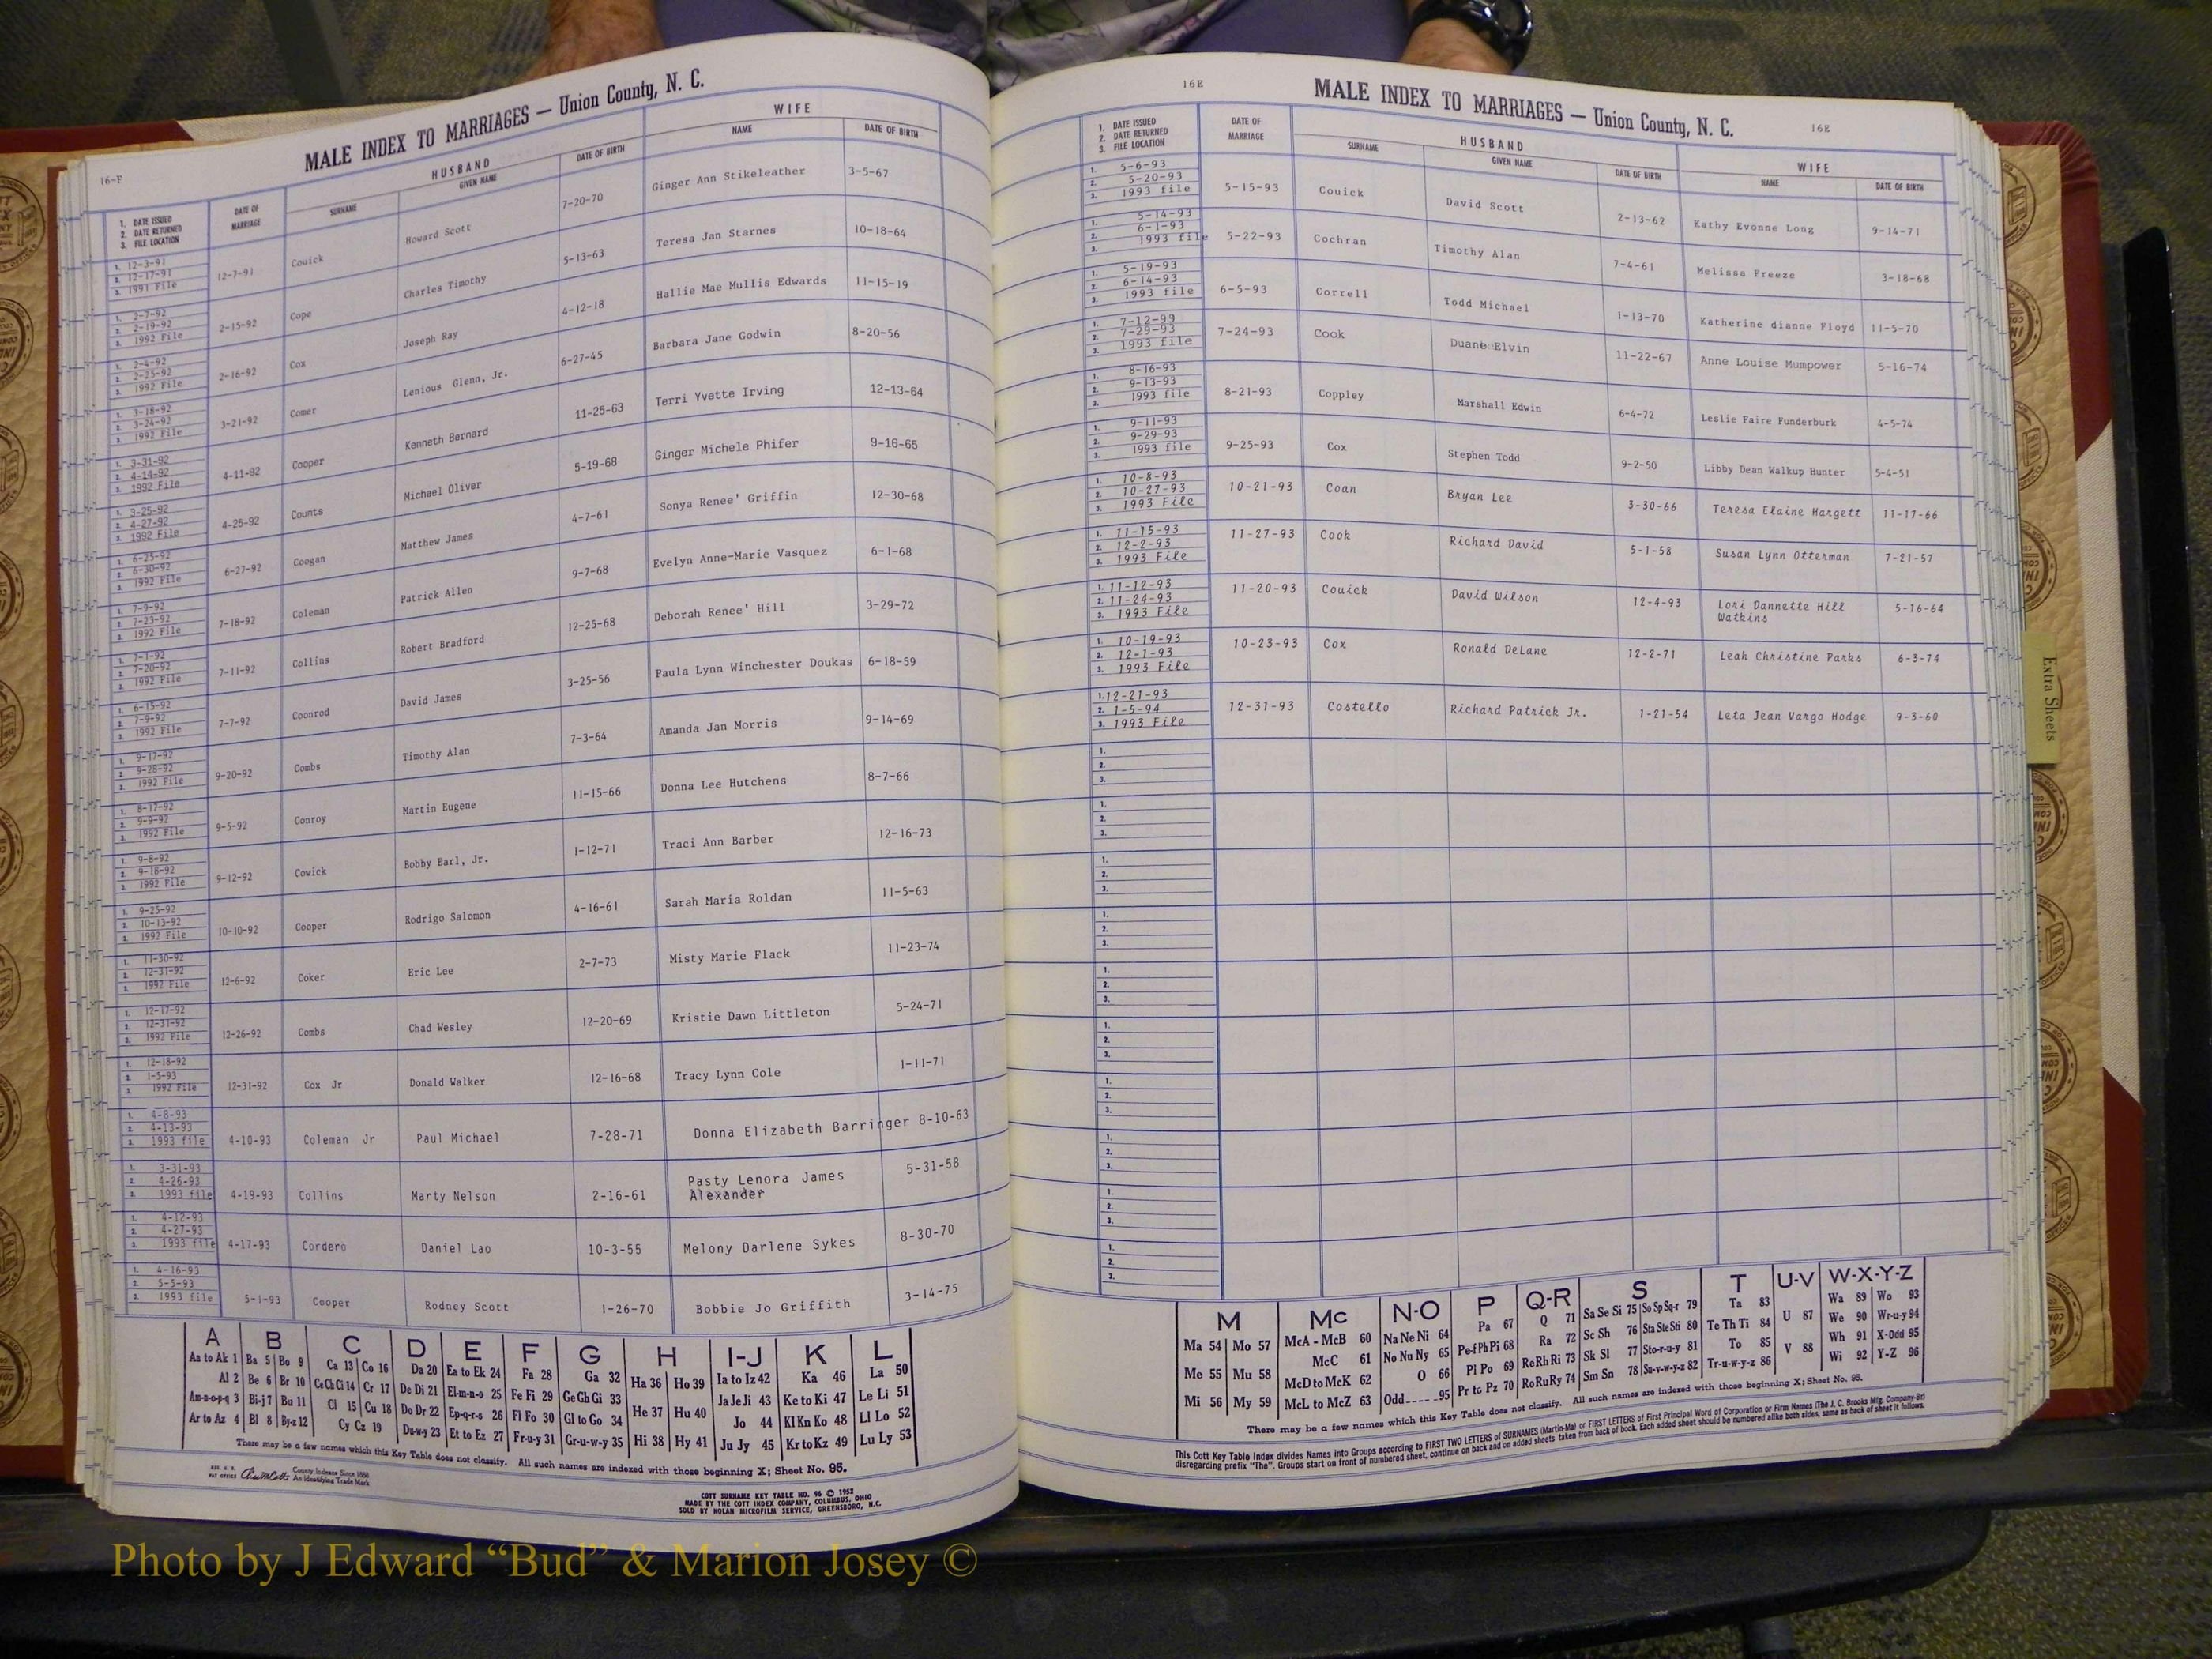 16-F
MALE INDEX TO MARRIAGES — Union County, N. C.
1. DATE ISSUED
2. DATE RETURNED
3. FILE LOCATION
DATE OF MARRIAGE
HUSBAND
SURNAME
GIVEN NAME
DATE OF BIRTH
WIFE
NAME
DATE OF BIRTH
1. 12-3-91
2. 12-17-91
3. 1991 File
12-7-91 Couick Howard Scott 7-20-70 Ginger Ann Stikeleather 3-5-67
1. 2-7-92
2. 2-19-92
3. 1992 File
2-15-92 Cope Charles Timothy 5-13-63 Teresa Jan Starnes 10-18-64
1. 2-4-92
2. 2-25-92
3. 1992 File
2-16-92 Cox Joseph Ray 4-12-18 Hallie Mae Mullis Edwards 11-15-19
1. 3-18-92
2. 3-24-92
3. 1992 File
3-21-92 Comer Lenious Glenn, Jr. 6-27-45 Barbara Jane Godwin 8-20-56
1. 3-31-92
2. 4-14-92
3. 1992 File
4-11-92 Cooper Kenneth Bernard 11-25-63 Terri Yvette Irving 12-13-64
1. 3-25-92
2. 4-27-92
3. 1992 File
4-25-92 Counts Michael Oliver 5-19-68 Ginger Michele Phifer 9-16-65
1. 6-25-92
2. 6-30-92
3. 1992 File
6-27-92 Coogan Matthew James 4-7-61 Sonya Renee' Griffin 12-30-68
1. 7-9-92
2. 7-23-92
3. 1992 File
7-18-92 Coleman Patrick Allen 9-7-68 Evelyn Anne-Marie Vasquez 6-1-68
1. 7-1-92
2. 7-20-92
3. 1992 File
7-11-92 Collins Robert Bradford 12-25-68 Deborah Renee' Hill 3-29-72
1. 6-15-92
2. 7-9-92
3. 1992 File
7-7-92 Coonrod David James 3-25-56 Paula Lynn Winchester Doukas 6-18-59
1. 9-17-92
2. 9-28-92
3. 1992 File
9-20-92 Combs Timothy Alan 7-3-64 Amanda Jan Morris 9-14-69
1. 8-17-92
2. 9-9-92
3. 1992 File
9-5-92 Conroy Martin Eugene 11-15-66 Donna Lee Hutchens 8-7-66
1. 9-8-92
2. 9-18-92
3. 1992 File
9-12-92 Cowick Bobby Earl, Jr. 1-12-71 Traci Ann Barber 12-16-73
1. 9-25-92
2. 10-13-92
3. 1992 File
10-10-92 Cooper Rodrigo Salomon 4-16-61 Sarah Maria Roldan 11-5-63
1. 11-30-92
2. 12-31-92
3. 1992 File
12-6-92 Coker Eric Lee 2-7-73 Misty Marie Flack 11-23-74
1. 12-17-92
2. 12-31-92
3. 1992 File
12-26-92 Combs Chad Wesley 12-20-69 Kristie Dawn Littleton 5-24-71
1. 12-18-92
2. 1-5-93
3. 1992 File
12-31-92 Cox Jr Donald Walker 12-16-68 Tracy Lynn Cole 1-11-71
1. 4-8-93
2. 4-13-93
3. 1993 file
4-10-93 Coleman Jr Paul Michael 7-28-71 Donna Elizabeth Barringer 8-10-63
1. 3-31-93
2. 4-26-93
3. 1993 file
4-19-93 Collins Marty Nelson 2-16-61 Pasty Lenora James Alexander 5-31-58
1. 4-12-93
2. 4-27-93
3. 1993 file
4-17-93 Cordero Daniel Lao 10-3-55 Melony Darlene Sykes 8-30-70
1. 4-16-93
2. 5-5-93
3. 1993 file
5-1-93 Cooper Rodney Scott 1-26-70 Bobbie Jo Griffith 3-14-75
A B C D E F G H I-J K L
Aa to Ak 1 Ba 5 Bo 9 Ca 13 Co 16 Da 20 Ea to Ek 24 Fa 28 Ga 32 Ha 36 Ho 39 Ia to Iz 42 Ka 46 La 50
Al 2 Be 6 Br 10 Ce Ch Ci 14 Cr 17 De Di 21 El-m-n-o 25 Fe Fi 29 Ge Gh Gi 33 He 37 Hu 40 Ja Je Ji 43 Ke to Ki 47 Le Li 51
Am-n-o-p-q 3 Bi-j 7 Bu 11 Cl 15 Cu 18 Do Dr 22 Ep-q-r-s 26 Fl Fo 30 Gl to Go 34 Hi 38 Hy 41 Jo 44 Kl Kn Ko 48 Ll Lo 52
Ar to Az 4 Bl 8 By-z 12 Cy Cz 19 Du-w-y 23 Et to Ez 27 Fr-u-y 31 Gr-u-w-y 35 Ju Jy 45 Kr to Kz 49 Lu Ly 53
There may be a few names which this Key Table does not classify. All such names are indexed with those beginning X; Sheet No. 95.
County Indexes Since 1888
An Identifying Trade Mark
COTT SURNAME KEY TABLE NO. 96 © 1952
MADE BY THE COTT INDEX COMPANY, COLUMBUS, OHIO
SOLD BY NOLAN MICROFILM SERVICE, GREENSBORO, N.C.
16E
MALE INDEX TO MARRIAGES — Union County, N. C.
16E
1. DATE ISSUED
2. DATE RETURNED
3. FILE LOCATION
DATE OF MARRIAGE
HUSBAND
SURNAME
GIVEN NAME
DATE OF BIRTH
WIFE
NAME
DATE OF BIRTH
1. 5-6-93
2. 5-20-93
3. 1993 file
5-15-93 Couick David Scott 2-13-62 Kathy Evonne Long 9-14-71
1. 5-14-93
2. 6-1-93
3. 1993 file
5-22-93 Cochran Timothy Alan 7-4-61 Melissa Freeze 3-18-68
1. 5-19-93
2. 6-14-93
3. 1993 file
6-5-93 Correll Todd Michael 1-13-70 Katherine dianne Floyd 11-5-70
1. 7-12-99
2. 7-29-93
3. 1993 file
7-24-93 Cook Duane Elvin 11-22-67 Anne Louise Mumpower 5-16-74
1. 8-16-93
2. 9-13-93
3. 1993 file
8-21-93 Coppley Marshall Edwin 6-4-72 Leslie Faire Funderburk 4-5-74
1. 9-11-93
2. 9-29-93
3. 1993 file
9-25-93 Cox Stephen Todd 9-2-50 Libby Dean Walkup Hunter 5-4-51
1. 10-8-93
2. 10-27-93
3. 1993 File
10-21-93 Coan Bryan Lee 3-30-66 Teresa Elaine Hargett 11-17-66
1. 11-15-93
2. 12-2-93
3. 1993 File
11-27-93 Cook Richard David 5-1-58 Susan Lynn Otterman 7-21-57
1. 11-12-93
2. 11-24-93
3. 1993 File
11-20-93 Couick David Wilson 12-4-93 Lori Dannette Hill Watkins 5-16-64
1. 10-19-93
2. 12-1-93
3. 1993 File
10-23-93 Cox Ronald DeLane 12-2-71 Leah Christine Parks 6-3-74
1. 12-21-93
2. 1-5-94
3. 1993 File
12-31-93 Costello Richard Patrick Jr. 1-21-54 Leta Jean Vargo Hodge 9-3-60
1.
2.
3.
1.
2.
3.
1.
2.
3.
1.
2.
3.
1.
2.
3.
1.
2.
3.
1.
2.
3.
1.
2.
3.
1.
2.
3.
1.
2.
3.
Extra Sheets
M Mc N-O P Q-R S T U-V W-X-Y-Z
Ma 54 Mo 57 McA - McB 60 Na Ne Ni 64 Pa 67 Q 71 Sa Se Si 75 So Sp Sq-r 79 Ta 83 U 87 Wa 89 Wo 93
Me 55 Mu 58 McC 61 No Nu Ny 65 Pe-f Ph Pi 68 Ra 72 Sc Sh 76 Sta Ste Sti 80 Te Th Ti 84 V 88 We 90 Wr-u-y 94
Mi 56 My 59 McD to McK 62 O 66 Pl Po 69 Re Rh Ri 73 Sk Sl 77 Sto-r-u-y 81 To 85 Wh 91 X-Odd 95
McL to McZ 63 Odd 95 Pr to Pz 70 Ro Ru Ry 74 Sm Sn 78 Su-v-w-y-z 82 Tr-u-w-y-z 86 Wi 92 Y-Z 96
There may be a few names which this Key Table does not classify. All such names are indexed with those beginning X; Sheet No. 95.
This Cott Key Table Index divides Names into Groups according to FIRST TWO LETTERS of SURNAMES (Martin-Ma) or FIRST LETTERS of First Principal Word of Corporation or Firm Names (The J. C. Brooks Mfg. Company-Br)
disregarding prefix "The". Groups start on front of numbered sheet, continue on back and on added sheets taken from back of book. Each added sheet should be numbered alike both sides, same as back of sheet it follows.
Photo by J Edward “Bud” & Marion Josey ©